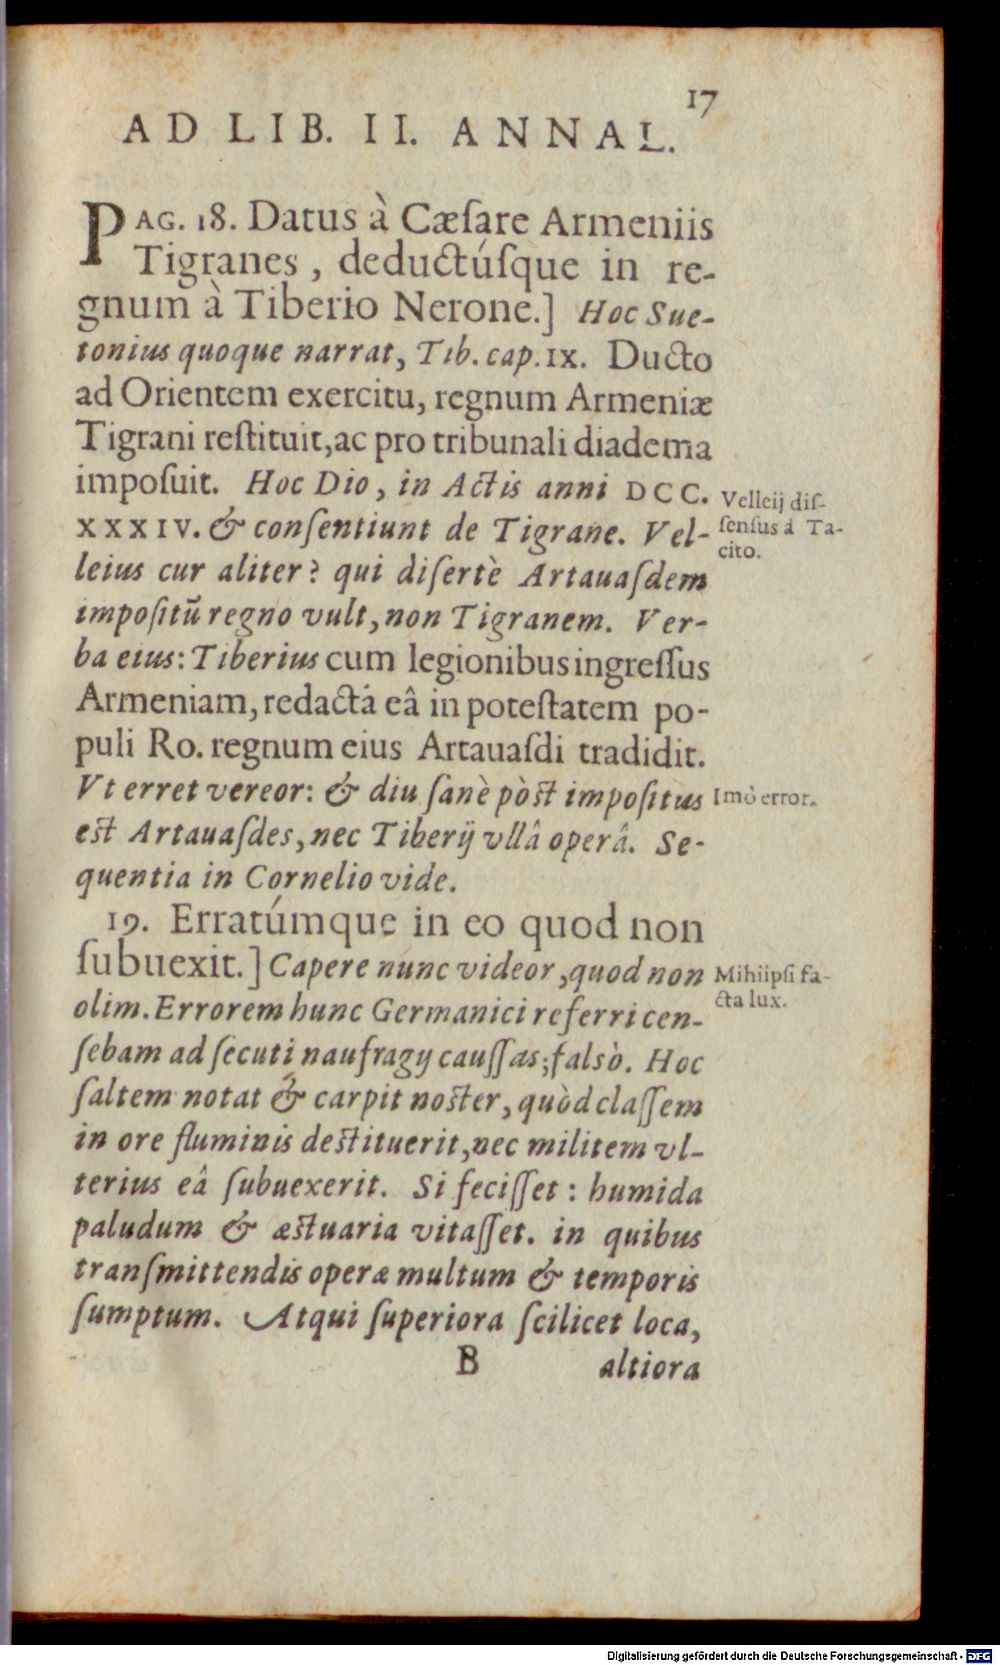 17
AD LIB. II. ANNAL.
PAG. 18. Datus à Cæſare Armeniis
Tigranes, deductúſque in re-
gnum à Tiberio Nerone.] Hoc Sue-
tonius quoque narrat, Tib. cap. IX. Ducto
ad Orientem exercitu, regnum Armeniæ
Tigrani reſtituit, ac pro tribunali diadema
impoſuit. Hoc Dio, in Actis anni DCC.
XXXIV. & conſentiunt de Tigrane. Vel-
leius cur aliter? qui diſertè Artauaſdem
impoſitū regno vult, non Tigranem. Ver-
ba eius: Tiberius cum legionibus ingreſſus
Armeniam, redactâ eâ in poteſtatem po-
puli Ro. regnum eius Artauaſdi tradidit.
Vt erret vereor: & diu ſanè pòst impoſitus
est Artauaſdes, nec Tiberij vllâ operâ. Se-
quentia in Cornelio vide.
Velleij diſ-
ſenſus à Ta-
cito.
Imò error.
19. Erratúmque in eo quod non
ſubuexit.] Capere nunc videor, quod non
olim. Errorem hunc Germanici referri cen-
ſebam ad ſecuti naufragij cauſſas; falsò. Hoc
ſaltem notat & carpit noster, quòd claſſem
in ore fluminis destituerit, nec militem vl-
terius eâ ſubuexerit. Si feciſſet: humida
paludum & æstuaria vitaſſet. in quibus
tranſmittendis operæ multum & temporis
ſumptum. Atqui ſuperiora ſcilicet loca,
Mihi ipſi fa-
cta lux.
B altiora
Digitalisierung gefördert durch die Deutsche Forschungsgemeinschaft - DFG